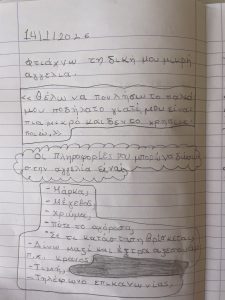 14/1/2026
Φτιάχνω τη δική μου μικρή
αγγελία.
«Θέλω να πουλήσω το παλιό
μου ποδήλατο γιατί μου είναι
πια μικρό και δεν το χρησιμο
ποιώ.»
Οι πληροφορίες που μπορώ να δώσω
στην αγγελία είναι
- Μάρκα,
- Μέγεθος
- Χρώμα,
- Πότε το αγόρασα,
- Σε τι κατάσταση βρίσκεται,
- Δίνω μαζί και έξτρα αξεσουάρ
π.χ. κράνος
- Τιμή,
- Τηλέφωνο επικοινωνίας.